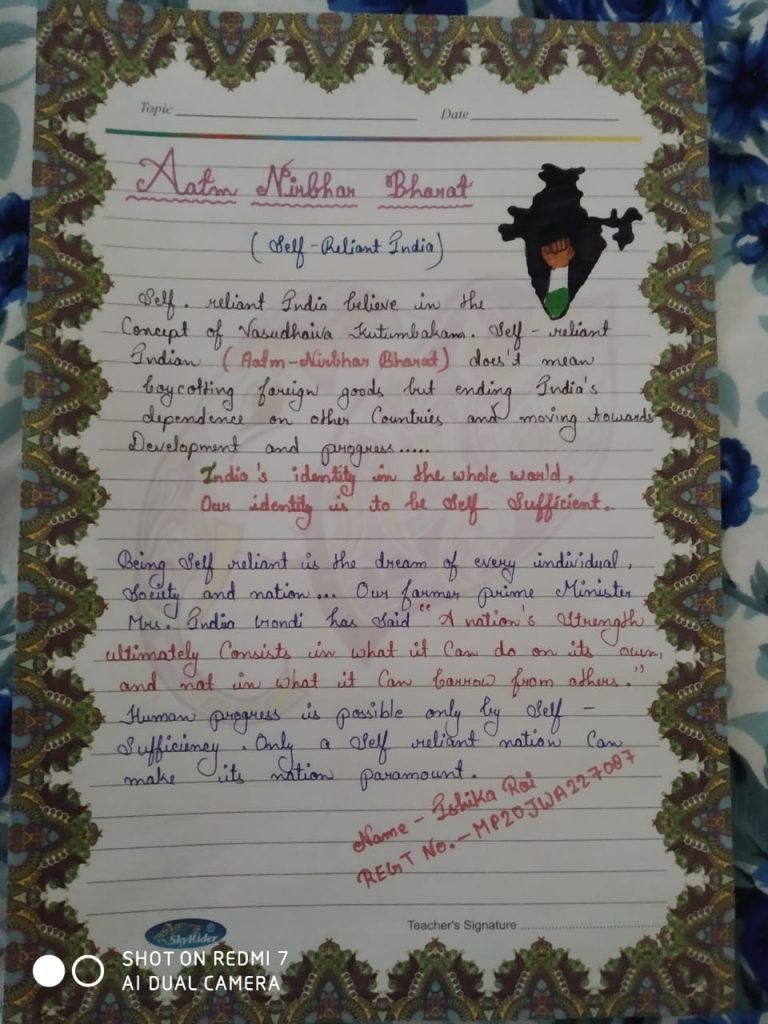 Topic Date
Aatm Nirbhar Bharat
(Self-Reliant India)
Self. reliant India believe in the
Concept of Vasudhaiva Kutumbakam. Self-reliant
Indian (Aatm-Nirbhar Bharat) does't mean
boycotting foreign goods but ending India's
dependence on other Countries and moving towards
Development and progress.....
India's identity in the whole world,
Our identity is to be Self Sufficient.
Being Self reliant is the dream of every individual,
Society and nation... Our farmer prime Minister
Mrs. India Gandi has said "A nation's Strength
ultimately Consists in what it Can do on its own,
and not in what it Can barrow from others."
Human progress is possible only by Self -
Sufficiency. Only a Self reliant nation Can
make its nation paramount.
Name - Ishika Rai
REGT NO. - MP20JWA227087
SkyRider
Teacher's Signature
SHOT ON REDMI 7
AI DUAL CAMERA